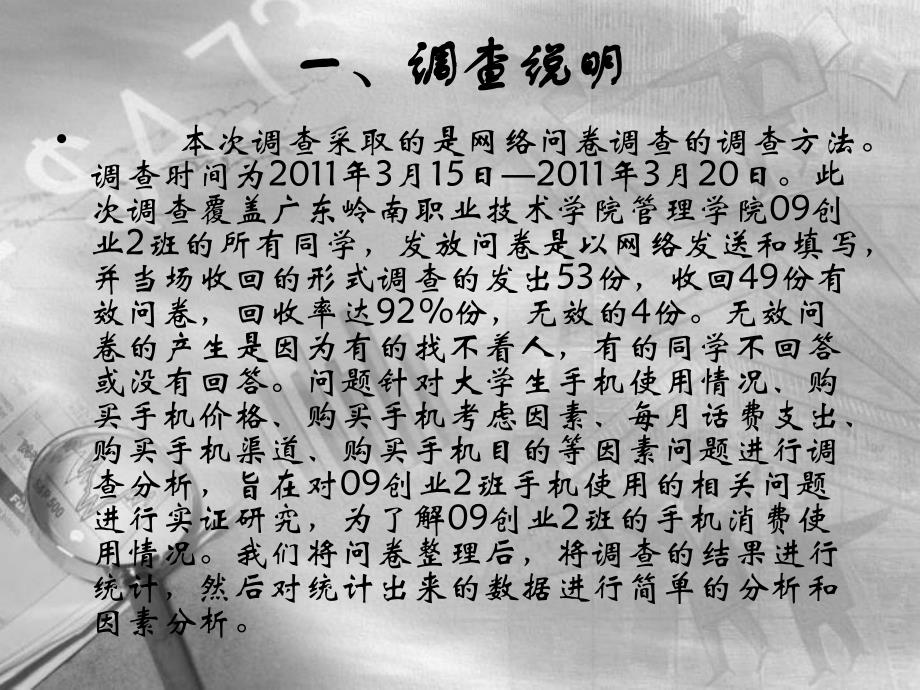 ¢ Δ.73
一、调查说明
• 本次调查采取的是网络问卷调查的调查方法。
调查时间为2011年3月15日—2011年3月20日。此
次调查覆盖广东岭南职业技术学院管理学院09创
业2班的所有同学，发放问卷是以网络发送和填写，
并当场收回的形式调查的发出53份，收回49份有
效问卷，回收率达92%份，无效的4份。无效问
卷的产生是因为有的找不着人，有的同学不回答
或没有回答。问题针对大学生手机使用情况、购
买手机价格、购买手机考虑因素、每月话费支出、
购买手机渠道、购买手机目的等因素问题进行调
查分析，旨在对09创业2班手机使用的相关问题
进行实证研究，为了解09创业2班的手机消费使
用情况。我们将问卷整理后，将调查的结果进行
统计，然后对统计出来的数据进行简单的分析和
因素分析。